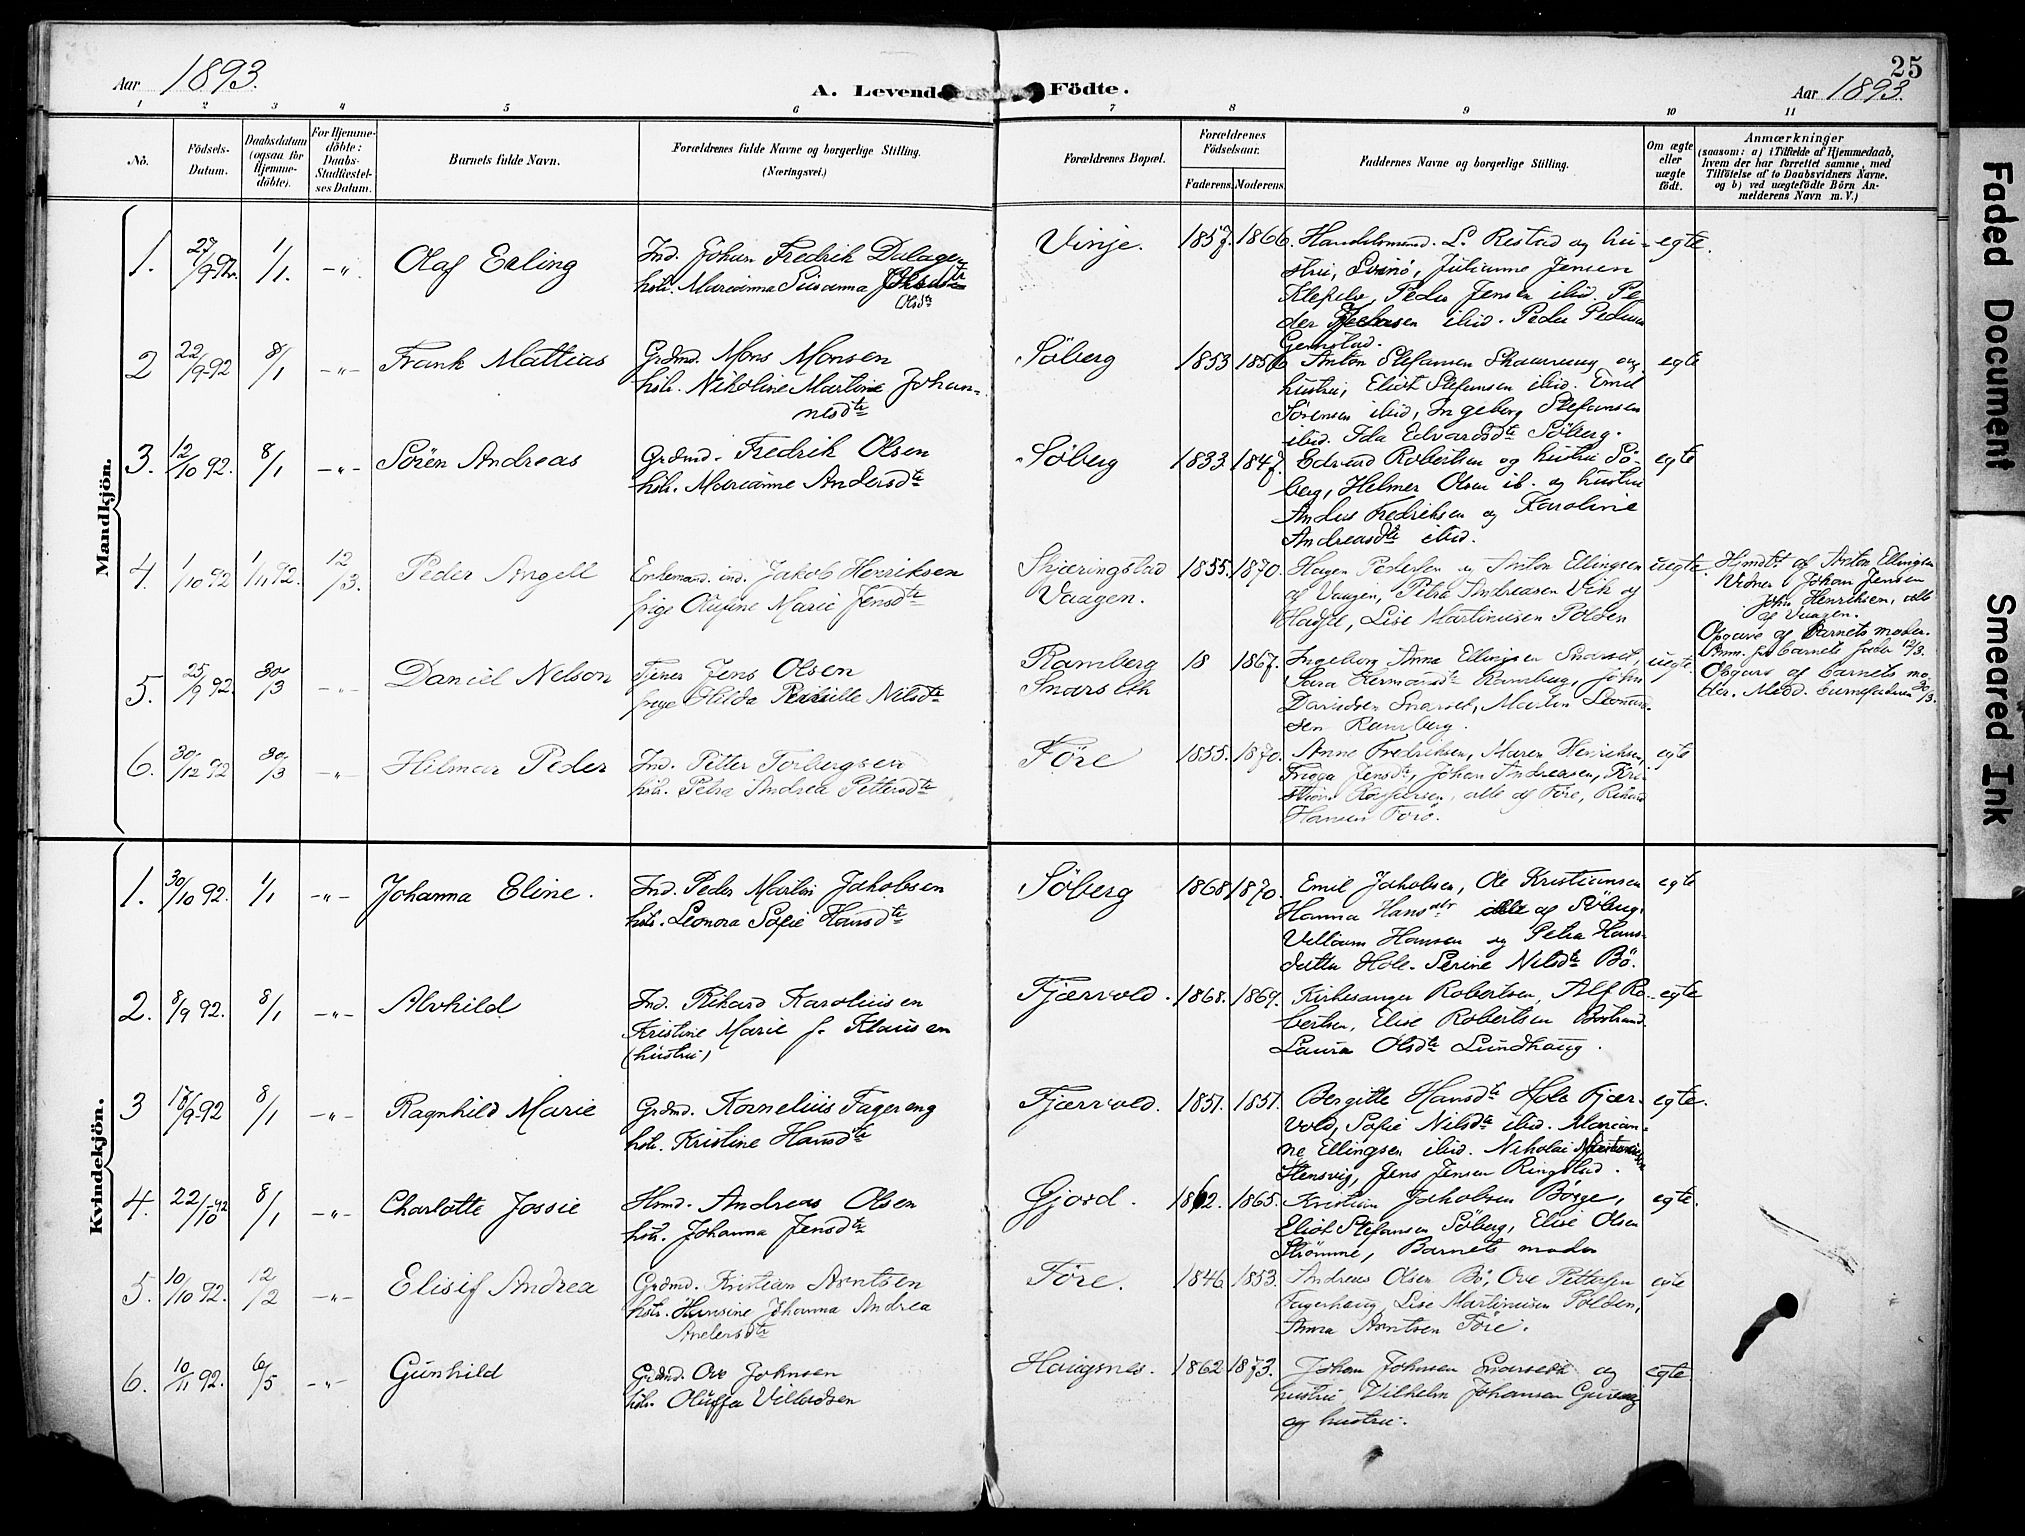 Aar 1893.
A. Levende Födte.
25
Aar 1893.
1 2 3 4 5 6 7 8 9 10 11
No.
Födsels-
Datum.
Daabsdatum
(ogsaa for
Hjemme-
döbte).
For Hjemme-
döbte:
Daabs-
Stadfæstel-
ses Datum.
Barnets fulde Navn.
Forældrenes fulde Navne og borgerlige Stilling.
(Næringsvei.)
Forældrenes Bopæl.
Forældrenes
Födselsaar.
Faderens. Moderens.
Faddernes Navne og borgerlige Stilling.
Om ægte
eller
uægte
födt.
Anmærkninger
(saasom: a) i Tilfælde af Hjemmedaab,
hvem der har forrettet samme, med
Tilföielse af to Daabsvidners Navne.
og b) ved uægtefödte Börn An-
melderens Navn m. V.)
Mandkjön.
1. 27/9 1/1. -"- Olaf Erling
Ind. Johan Fredrik
hstr. Marianna Susanna
Olsdtr
Vinje. 1857. 1866.
Handelsmand L. Restad og hu- egte.
stru, Svinö, Julianne Jensen
Klepelv, Peder Jensen ibid. Pe-
der ibid. Peder Pedersen
2 22/9-92 8/1 -"- Frank Mattias
Grdmd. Mons Monsen
hstr. Nikoline Martine Johan-
nesdtr
Söberg 1853 1856
Anton Stefansen Skaarung og egte
hustru, Eliot Stefansen ibid. Emil
Sörensen ibid, Ingeberg Stefansen
ibid. Ida Edvardsdtr Söberg.
3. 12/10 92. 8/1 -"- Sören Andreas
Grdmd. Fredrik Olsen
hstr. Marianne Andersdtr
Söberg 1833. 1847.
Edvard Robertsen og hustru Sö- egte
berg, Helmer Olsen ib. og hustru
Anders Fredriksen og Karoline
Andreasdtr ibid.
4. 1/10 92 1/11 92. 12/3. Peder Angell
Enkemand. ind. Jakob Henriksen
pige Olufine Marie Jensdtr
Skjæringstad
Vaagen. 1855. 1870.
Hagen Pedersen og Anton Ellingsen uegte.
af Vaagen, Petra Andreasen Vik og
Lise Martinusen Polden
Hmdbt. af Anton Ellingsen
Vidner Johan Jensen
John Henriksen, alle
af Vaagen.
Opgave af Barnets moder.
Anm. for barnets fader 12/3.
5. 25/9 92. 30/3 -"- Daniel Nelson
Tjener Jens Olsen
pige Hilda Pernille Nilsdtr
Ramberg
Snarseth 18 1867.
Ingeborg Anna Ellingsen Snarset, uegte.
Sara Hermansdtr Ramberg, John
Davidsen Snarset, Martin Leonard-
sen Ramberg.
Obgave af barnets mo-
der. Medd. barnefaderen 30/3.
6. 30/12 92 30/3 -"- Hilmar Peder
Ind. Petter Torbergsen
hstr. Petra Andrea Pettersdtr
Före 1855. 1870.
Anne Fredriksen, Maren Henriksen, egte
Frigga Jensdtr, Johan Andreasen, Kri-
stian Kaspersen, alle af Före, Rikard
Hansen Forö.
Kvindekjön.
1. 30/10 92. 1/1 -"- Johanna Eline.
Ind. Peder Martin Jakobsen
hstr. Leonora Sofie Hansdtr
Söberg 1868. 1870.
Emil Jakobsen, Ole Kristiansen egte
Hanna Hansdtr alle af Söberg,
Villum Hansen og Petra Hans-
datter Hole. Serine Nilsdtr Bö.
2. 8/9 92. 8/1 -"- Alvhild
Ind. Rikard Karoliusen
Kristine Marie f. Klausen
(hustru)
Fjærvold. 1868. 1869.
Kirkesanger Robertsen, Alf Ro- egte
bertsen, Elise Robertsen
Laura Olsdtr Lundhaug.
3 17/9-92 8/1 -"- Ragnhild Marie
Grdmd. Kornelius Fagereng
hstr. Kristine Hansdtr
Fjærvold. 1851. 1851.
Bergitte Hansdtr Hole Fjær- egte.
vold, Sofie Nilsdtr ibid. Marian-
ne Ellingsen ibid. Nikolai
Stensvig, Jens Jensen Ringstad.
4. 22/10-92 8/1 -"- Charlotte Jossie
Hmd. Andreas Olsen
hstr. Johanna Jensdtr
Gjord. 1862. 1865.
Kristian Jakobsen Börge, egte.
Eliot Stefansen Söberg, Elise Olsen
Strömme, Barnets moder
5. 10/10 92. 12/2 -"- Elisif Andrea
Grdmd. Kristian Arntsen
hstr. Hansine Johanna Andrea
Andersdtr
Före. 1846. 1853.
Andreas Olsen Bö, Ove Pettersen egte
Fagerhaug, Lise Martinusen Polden,
Anna Arntsen Före.
6. 10/11 92. 6/5 -"- Gunhild
Grdmd Ove Johnsen
hstr. Oluffa Villadsen
Haugsnes. 1862 1873.
Johan Johnsen Snarseth og egte
hustru, Vilhelm Johansen
og hustru.
Faded Document
Smeared Ink